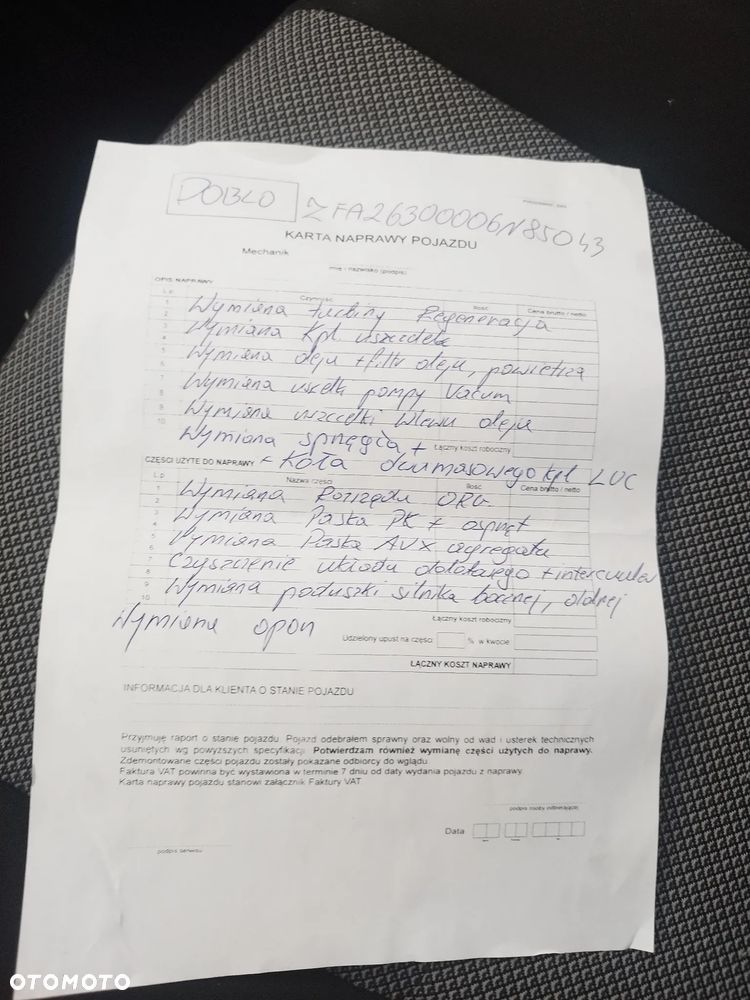 DOBLO ZFA26300006N85043
KARTA NAPRAWY POJAZDU
Mechanik
imię i nazwisko (podpis)
OPIS NAPRAWY
L.p. Czynność Ilość Cena brutto / netto
1
2
3
4
5
6
7
8
9
10
Wymiana turbiny Regeneracja
Wymiana kpl. uszczelek
Wymiana oleju + filtr oleju, powietrza
Wymiana uszcelki pompy Vacum
Wymiana uszczelki wlewu oleju
Łączny koszt robocizny
Wymiana sprzęgła +
CZĘŚCI UŻYTE DO NAPRAWY - Koła dwumasowego kpl LUC
L.p. Nazwa części Ilość Cena brutto / netto
1
2
3
4
5
6
7
8
9
10
Wymiana Rozrządu ORG.
Wymiana Paska PK + osprzęt
Wymiana Paska AVX agregatu
Czyszczenie układu dolotowego + intercooler
Wymiana poduszki silnika bocznej, dolnej
Łączny koszt robocizny
Wymiana opon
Udzielony upust na części % w kwocie
ŁĄCZNY KOSZT NAPRAWY
INFORMACJA DLA KLIENTA O STANIE POJAZDU
Przyjmuję raport o stanie pojazdu. Pojazd odebrałem sprawny oraz wolny od wad i usterek technicznych
usuniętych wg powyższych specyfikacji. Potwierdzam również wymianę części użytych do naprawy.
Zdemontowane części pojazdu zostały pokazane odbiorcy do wglądu.
Faktura VAT powinna być wystawiona w terminie 7 dniu od daty wydania pojazdu z naprawy.
Karta naprawy pojazdu stanowi załącznik Faktury VAT.
podpis osoby odbierającej
Data
podpis serwisu
OTOMOTO